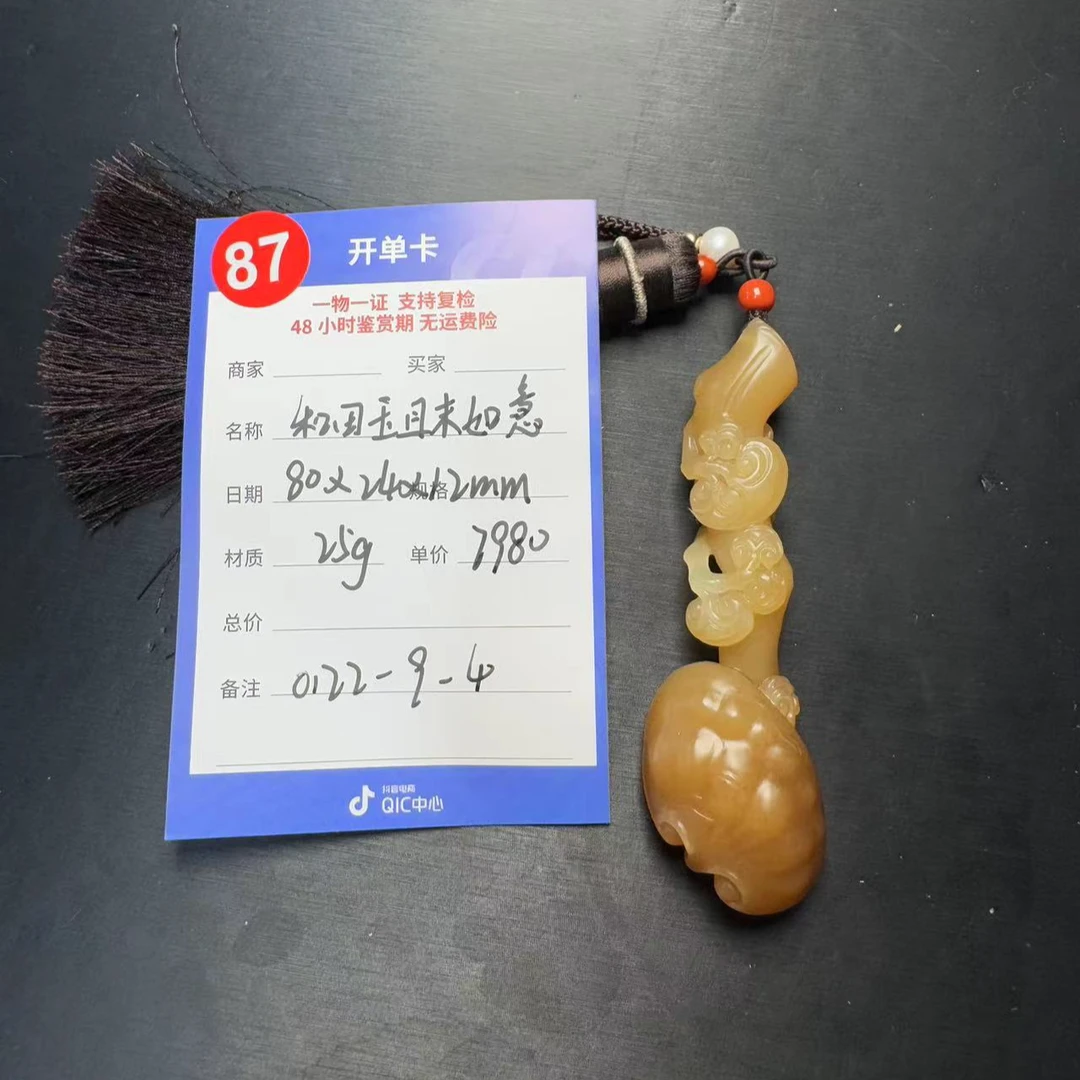 87
开单卡
一物一证 支持复检
48 小时鉴赏期 无运费险
商家 买家
名称 和田玉日来如意
日期 80x24x12mm 规格
材质 25g 单价 7980
总价
备注 0122-9-4
抖音电商
QIC中心